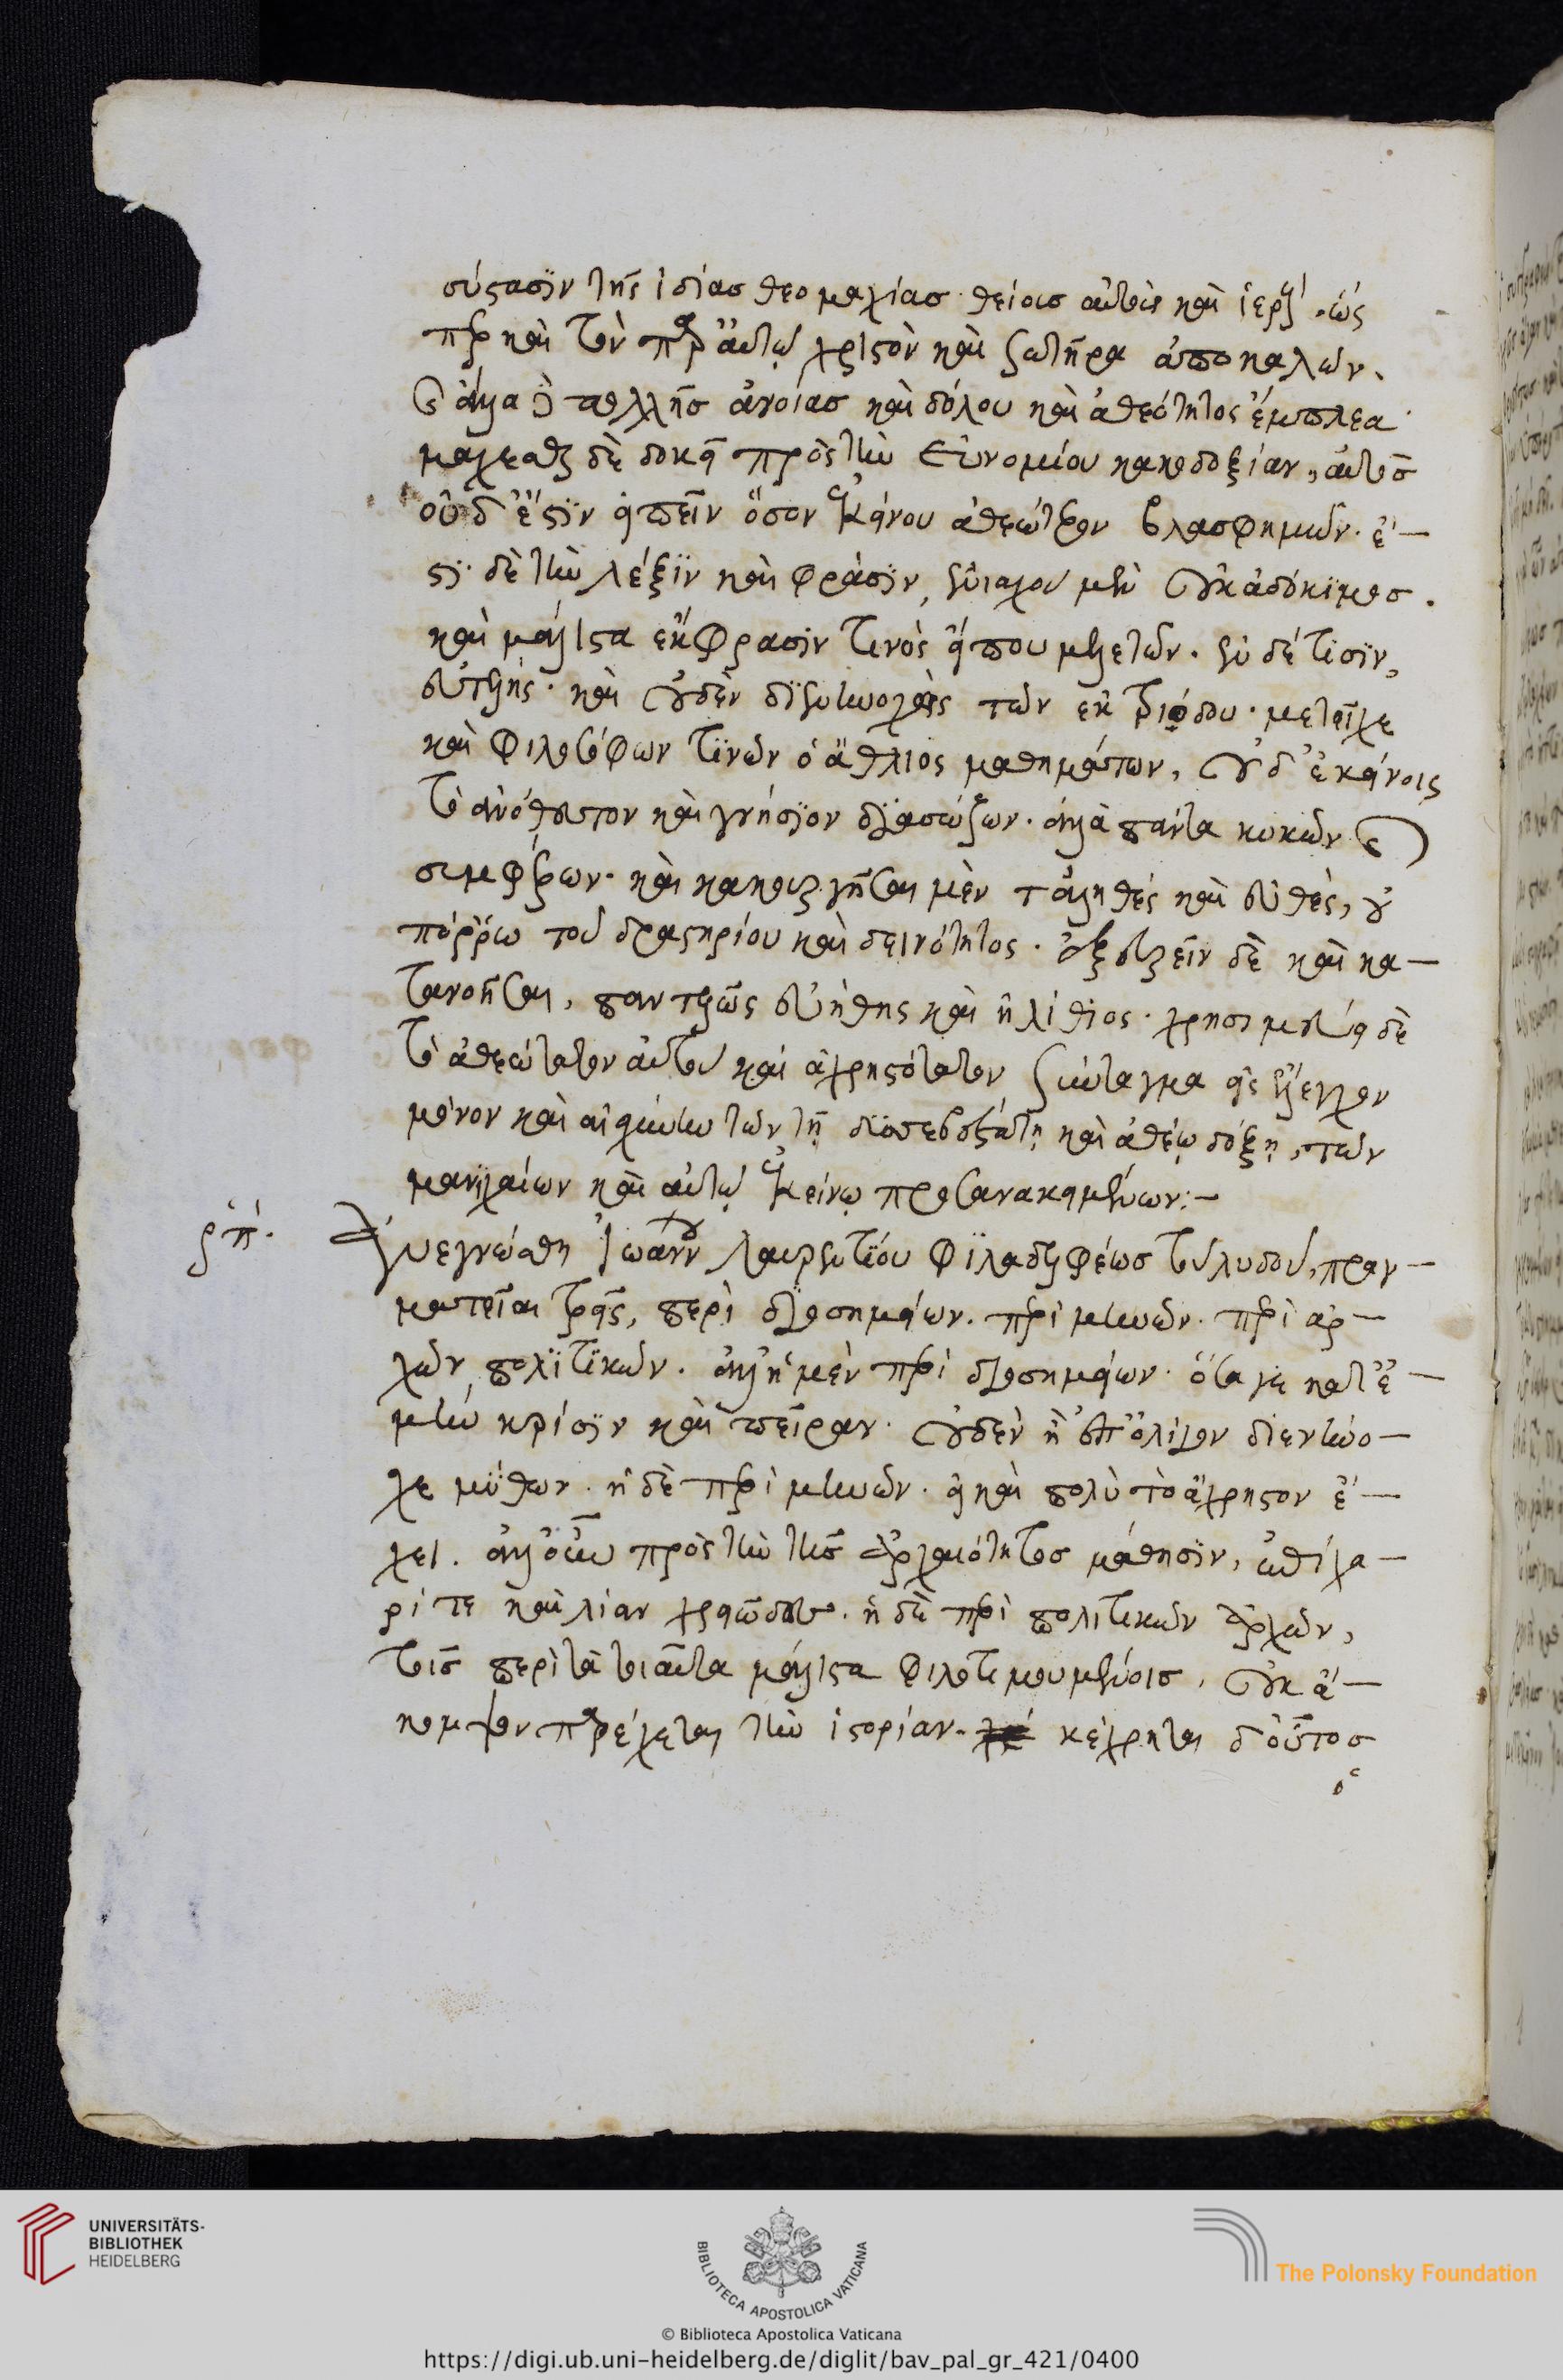 σύστασιν τῆς ἰδίας θεομαχίας. θείοις αὐτοῖς καὶ ἱεροῖς. ὥς
περ καὶ τὸν παρ' αὐτῷ χριστὸν καὶ σωτῆρα ἀποκαλῶν.
πολλῆς ἀνοίας καὶ δόλου καὶ ἀθεότητος ἔμπλεα·
μάχεσθαι δὲ δοκεῖ πρὸς τὴν Εὐνομίου κακοδοξίαν, αὐτὸς
οὐδ' ἔστιν εἰπεῖν ὅσον ἐκείνου ἀθεώτερον βλασφημῶν. ἔ-
στι δὲ τὴν λέξιν καὶ φράσιν, ἐνιαχοῦ μὲν οὐκ ἀδόκιμος.
καὶ μάλιστα ἔκφρασίν τινος εἴπου μελετῶν. ἐν δέ τισιν,
εὐτελής. καὶ οὐδὲν διενηνοχὼς τῶν ἐκ τριόδου. μετεῖχε
καὶ φιλοσόφων τινῶν ὁ ἄθλιος μαθημάτων, οὐδ' ἐκείνοις
τὸ ἀνόθευτον καὶ γνήσιον διασώζων. ἀλλὰ πάντα κυκῶν καὶ
συμφέρων. καὶ κακουργῆσαι μὲν τἀληθὲς καὶ εὐθές, οὐ
πόρρω τοῦ δραστηρίου καὶ δεινότητος. ἐξευρεῖν δὲ καὶ κα-
τανοῆσαι, παντελῶς εὐήθης καὶ ἠλίθιος. χρησιμεύει δὲ
τὸ ἀθεώτατον αὐτοῦ καὶ ἀχρηστότατον σύνταγμα εἰς ἔλεγχον
μόνον καὶ αἰσχύνην τῶν τῇ δυσσεβεστάτῃ καὶ ἀθέῳ δόξῃ, τῶν
μανιχαίων καὶ αὐτῷ ἐκείνῳ προσανακειμένων:-
ρπ΄. Ἀνεγνώσθη Ἰωάννου Λαυρεντίου Φιλαδελφέως τοῦ λυδοῦ, πραγ-
ματεῖαι τρεῖς, περὶ διοσημείων. περὶ μηνῶν. περὶ ἀρ-
χῶν πολιτικῶν. ἀλλ' ἡ μὲν περὶ διοσημείων. ὅσα γε κατ' ἐ-
μὴν κρίσιν καὶ πεῖραν. οὐδὲν ἢ ἐπ' ὀλίγον διενήνο-
χε μύθων. ἡ δὲ περὶ μηνῶν. εἰ καὶ πολὺ τὸ ἄχρηστον ἔ-
χει. ἀλλ' οὖν πρὸς τὴν τῆς ἀρχαιότητος μάθησιν, ἐπίχα-
ρί τε καὶ λίαν χρειῶδες. ἡ δὲ περὶ πολιτικῶν ἀρχῶν,
τοῖς περὶ τὰ τοιαῦτα μάλιστα φιλοτιμουμένοις, οὐκ ἄ-
κομψον παρέχεται τὴν ἱστορίαν. κέχρηται δ' οὗτος
UNIVERSITÄTS-
BIBLIOTHEK
HEIDELBERG
BIBLIOTECA APOSTOLICA VATICANA
The Polonsky Foundation
© Biblioteca Apostolica Vaticana
https://digi.ub.uni-heidelberg.de/diglit/bav_pal_gr_421/0400